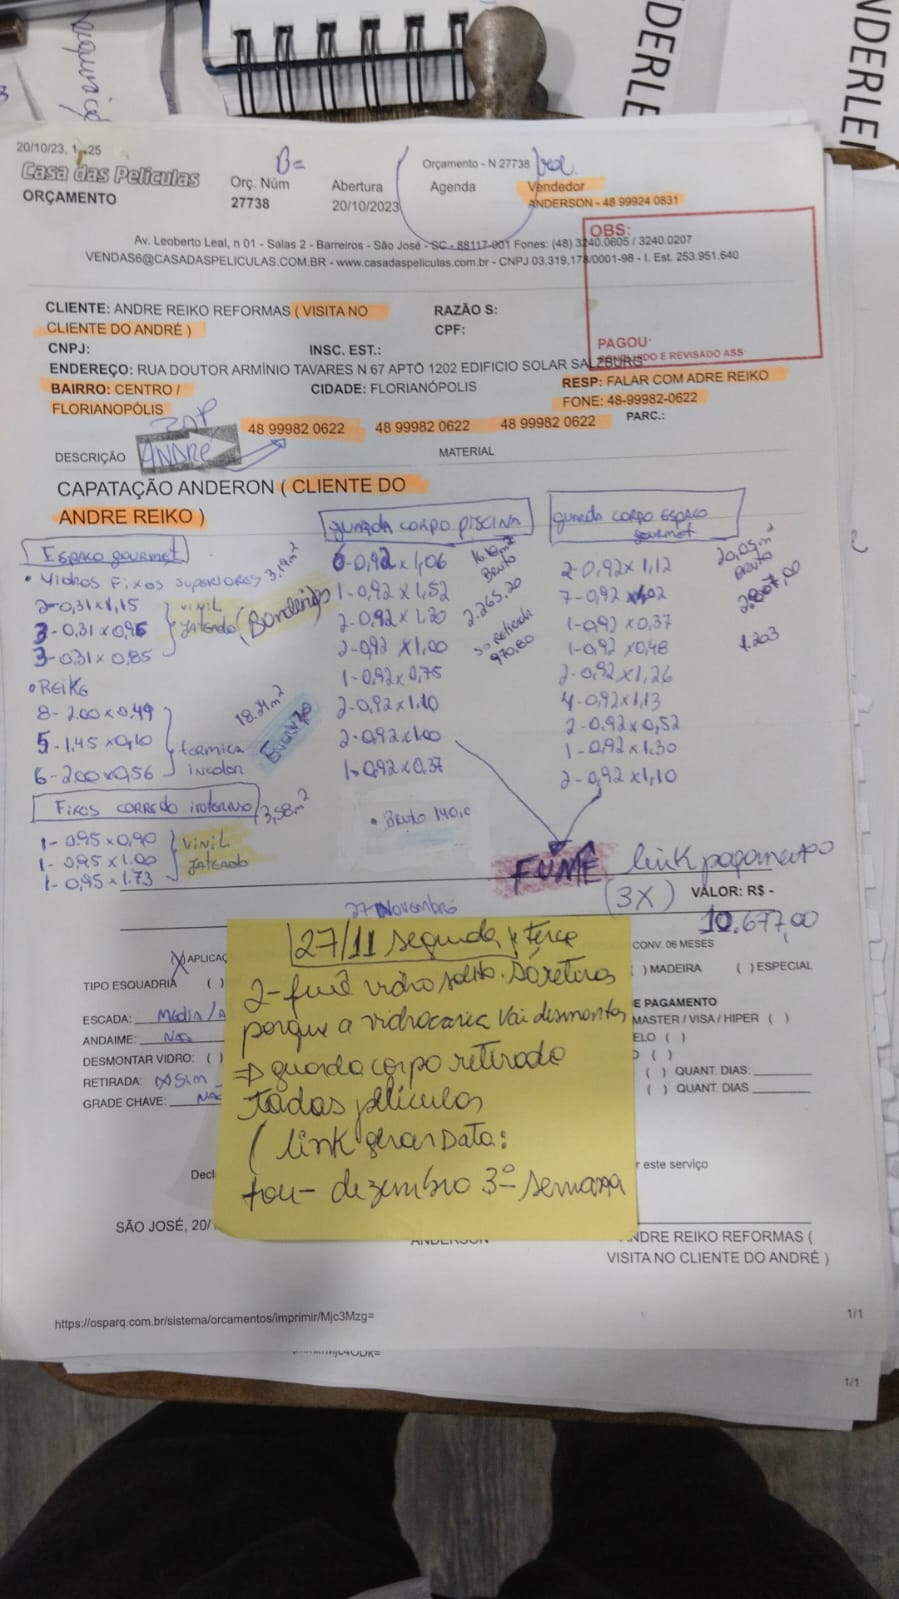 20/10/23, 1 :25
Orçamento - N 27738
Casa das Películas
ORÇAMENTO
B=
Orç. Núm
27738
Abertura
20/10/2023
Agenda
Vendedor
ANDERSON - 48 99924 0831
Av. Leoberto Leal, n 01 - Salas 2 - Barreiros - São José - SC - 88117-001 Fones: (48) 3240.0605 / 3240.0207
VENDAS6@CASADASPELICULAS.COM.BR - www.casadaspeliculas.com.br - CNPJ 03.319.178/0001-98 - I. Est. 253.951.640
OBS:
PAGOU
E REVISADO ASS
CLIENTE: ANDRE REIKO REFORMAS ( VISITA NO
CLIENTE DO ANDRÉ )
RAZÃO S:
CPF:
CNPJ:
INSC. EST.:
ENDEREÇO: RUA DOUTOR ARMÍNIO TAVARES N 67 APTÔ 1202 EDIFICIO SOLAR SALZBURG
BAIRRO: CENTRO /
FLORIANOPÓLIS
CIDADE: FLORIANÓPOLIS
RESP: FALAR COM ADRE REIKO
FONE: 48-99982-0622
48 99982 0622 48 99982 0622 48 99982 0622 PARC.:
DESCRIÇÃO
ANDRÉ
MATERIAL
CAPATAÇÃO ANDERON ( CLIENTE DO
ANDRE REIKO )
ESPAÇO gourmet
• Vidros Fixos superiores 3,19m²
2-0,31x1,15
3-0.31x0,95
3-0.31x0,85
vinil
JATEADO
• REIKE
8- 2.00x0.49
5-1.45x0,60
6-2.00x0,56
formica
incolor
18.21m²
FIXOS CORREDO interno
3,58m²
1- 0,95x0,90
1- 0,95x1.00
1- 0,95x1.73
VINIL
JATEADO
guarda corpo piscina
6-0,92x1,06
1-0.92x1,52
2-0.92x1,20
2-0,92x1,00
1-0.92x0,75
2-0,92x1.10
2-0.92x1.00
1-0.92x0,37
16.10m²
Bruto
2.265.20
só retirada
970,80
guarda corpo espaço
gourmet
2-0.92x1,12
7-0.92x1,02
1-0,92x0,37
1-0.92x0,48
2-0.92x1,26
4-0.92x1,13
2-0.92x0,52
1-0.92x1.30
2-0,92x1,10
20,05m²
Bruto
2.807,00
1.203
FUMÊ
link pagamento
(3X)
VALOR: R$ -
10.677,00
27 Novembro
27/11 segunda e terça
2-fumê vidro solto. Só retirar
porque a vidraçaria vai desmontar
⇒ guarda corpo retirado
todas películas
( link gerar Data:
fou- dezembro 3ª semana
APLICAÇ
TIPO ESQUADRIA ( )
CONV. 06 MESES
( ) MADEIRA ( ) ESPECIAL
ESCADA:
ANDAIME: Não
DESMONTAR VIDRO: ( )
RETIRADA: (X) SIM
GRADE CHAVE:
E PAGAMENTO
MASTER / VISA / HIPER ( )
ELO ( )
( ) QUANT. DIAS:
( ) QUANT. DIAS
Decl
r este serviço
SÃO JOSÉ, 20/
ANDERSON
ANDRE REIKO REFORMAS (
VISITA NO CLIENTE DO ANDRÉ )
https://osparq.com.br/sistema/orcamentos/imprimir/Mjc3Mzg=
1/1
1/1